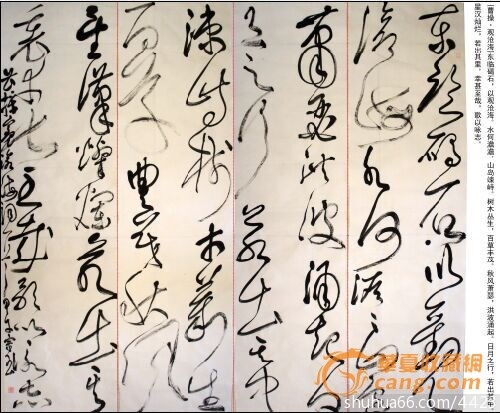 [曹操·观沧海]东临碣石，以观沧海。水何澹澹，山岛竦峙。树木丛生，百草丰茂。秋风萧瑟，洪波涌起。日月之行，若出其中。
星汉灿烂，若出其里。幸甚至哉，歌以咏志。
东临碣石以观
沧海水何澹澹山岛
萧瑟洪波涌起日
月之行若出其中
竦峙树木丛生
百草豊茂秋风
星汉灿烂若出其
里幸甚至哉歌以咏志
华夏收藏网
cang.com
shuhua66.com/442